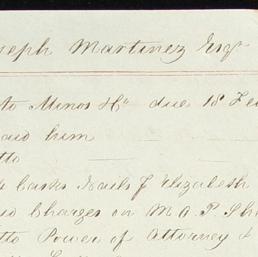 seph Martinez Esqr
to Minos Hn due 18 Feb
aid him
tto
Casks Nails J Elizabeth
id Charges on M A P Sh
tto Power of Attorney &